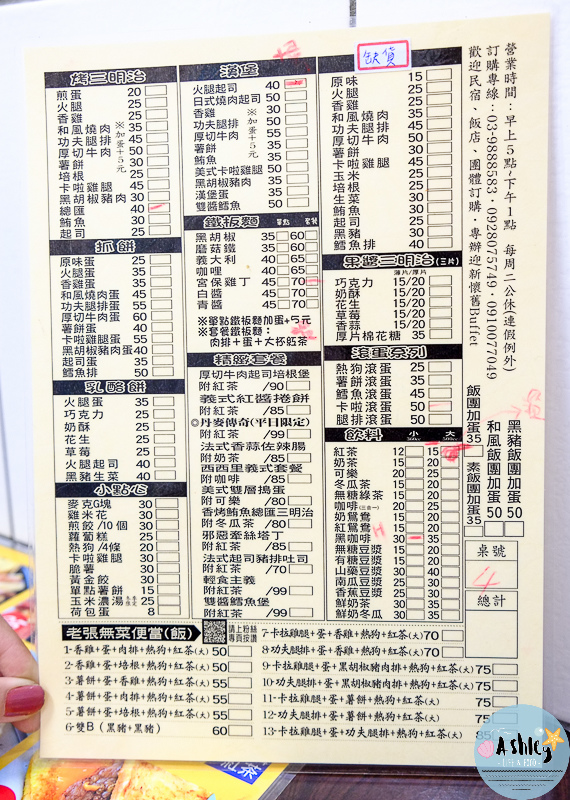 烤三明治
煎蛋 20
火腿 25
香雞 30
和風燒肉 35
功夫腿排 45
厚切牛肉 50
薯餅 30
培根 25
卡啦雞腿 45
黑胡椒豬肉 30
總匯 40
鮪魚 30
起司 25
※加蛋+5元
抓餅
原味蛋 25
火腿蛋 35
香雞蛋 35
和風燒肉蛋 45
功夫腿排蛋 55
厚切牛肉蛋 60
薯餅蛋 40
卡啦雞腿蛋 55
黑胡椒豬肉蛋 40
起司蛋 35
鱈魚排 50
乳酪餅
火腿蛋 35
巧克力 25
奶酥 25
花生 25
草莓 25
火腿起司 40
黑豬生菜 40
小點心
麥克G塊 30
雞米花 30
煎餃/10個 30
蘿蔔糕 25
熱狗/4條 20
卡啦雞腿 30
脆薯 30
黃金餃 30
單點薯餅 15
玉米濃湯 25
荷包蛋 8
漢堡
火腿起司 40
日式燒肉起司 50
香雞 30
功夫腿排 50
厚切牛肉 55
薯餅 30
鮪魚 35
美式卡啦雞腿 50
黑胡椒豬肉 35
漢堡蛋 30
雙醬鱈魚 50
※加蛋+5元
鐵板麵 單點 套餐
黑胡椒 35 60
磨菇 35 60
義大利 40 65
咖哩 40 65
宮保雞丁 45 70
白醬 45 70
青醬 45 70
※單點鐵板麵加蛋+5元
※套餐鐵板麵：
肉排+蛋+大杯紅茶
精緻套餐
厚切牛肉起司培根堡
附紅茶 /90
義式紅醬捲餅
附紅茶 /85
◎丹麥傳奇(平日限定)
附紅茶 /99
法式香蒜佐辣腸
附奶茶 /85
西西里義式套餐
附咖啡 /85
美式雙層搗蛋
附可樂 /80
香烤鮪魚總匯三明治
附冬瓜茶 /80
邪惡牽絲塔丁
附紅茶 /99
法式起司豬排吐司
附紅茶 /70
輕食主義
雙醬鱈魚堡
附紅茶 /99
缺貨
原味 15
火腿 25
香雞 25
和風燒肉 35
功夫腿排 45
厚切牛肉 50
薯餅 30
卡啦雞腿 45
玉米 25
培根 25
生菜 25
鮪魚 30
起司 30
鱈魚排 40
果醬三明治(三片)
薄片/厚片
巧克力 15/20
奶酥 15/20
花生 15/20
草莓 15/20
香蒜 15/20
厚片棉花糖 35
滾蛋系列
熱狗滾蛋 35
薯餅滾蛋 35
鱈魚滾蛋 45
卡啦滾蛋 50
腿排滾蛋 50
飲料 小 大
紅茶 12 15
奶茶 15 20
可樂 20 25
冬瓜茶 15 20
無糖綠茶 15 20
咖啡(三合一) 15 20
奶鴛鴦 15 20
紅鴛鴦 15 20
黑咖啡 30 35
無糖豆漿 15 20
有糖豆漿 15 20
山藥豆漿 30 40
南瓜豆漿 25 35
香蕉豆漿 25 35
鮮奶茶 30 35
鮮奶冬瓜 30 35
營業時間：早上5點~下午1點 每周二公休(連假例外)
訂購專線：03-9888583・0928075749・0910077049
歡迎民宿、飯店、團體訂購，專辦迎新懷舊Buffet
黑豬飯團加蛋 50
和風飯團加蛋 50
飯團加蛋 35
素飯團加蛋 35
桌號
4
總計
老張無菜便當(飯)
請上粉絲
專頁按讚
1-香雞+蛋+肉排+熱狗+紅茶(大) 50
2-香雞+蛋+培根+熱狗+紅茶(大) 50
3-薯餅+蛋+香雞+熱狗+紅茶(大) 55
4-薯餅+蛋+肉排+熱狗+紅茶(大) 55
5-薯餅+蛋+培根+熱狗+紅茶(大) 55
6-雙B(黑豬+黑豬) 60
7-卡拉雞腿+蛋+香雞+熱狗+紅茶(大) 70
8-功夫腿排+蛋+香雞+熱狗+紅茶(大) 70
9-卡拉雞腿+蛋+黑胡椒豬肉排+紅茶(大) 75
10-功夫腿排+蛋+黑胡椒豬肉排+紅茶(大) 75
11-卡拉雞腿+蛋+薯餅+熱狗+紅茶(大) 75
12-功夫腿排+蛋+薯餅+熱狗+紅茶(大) 75
13-卡拉雞腿+蛋+功夫腿排+熱狗+紅茶(大) 85
Ashley